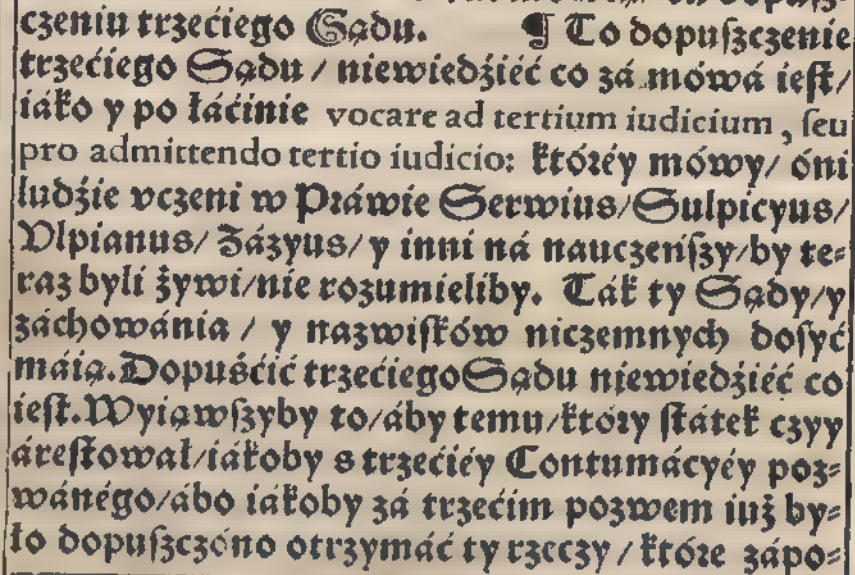 czeniu trzećiego Sądu. ¶ To dopuſzczenie
trzećiego Sądu / niewiedźiéć co zá mówá ieſt /
iáko y po łáćinie vocare ad tertium iudicium , ſeu
pro admittendo tertio iudicio: któréy mówy / óni
ludźie vczeni w Práwie Serwius / Sulpicyus /
Vlpianus / Zázyus / y inni ná nauczeńſzy / by te⸗
raz byli żywi / nie rozumieliby. Ták ty Sądy / y
záchowánia / y nazwiſków niczemnych doſyć
máią. Dopuśćić trzećiego Sądu niewiedźiéć co
ieſt. Wyiąwſzyby to / áby temu / który ſtátek czyy
áreſtował / iákoby s trzećiéy Contumácyéy poz⸗
wánégo / ábo iákoby zá trzećim pozwem iuż by⸗
ło dopuſzczóno otrzymáć ty rzeczy / któré zápo⸗